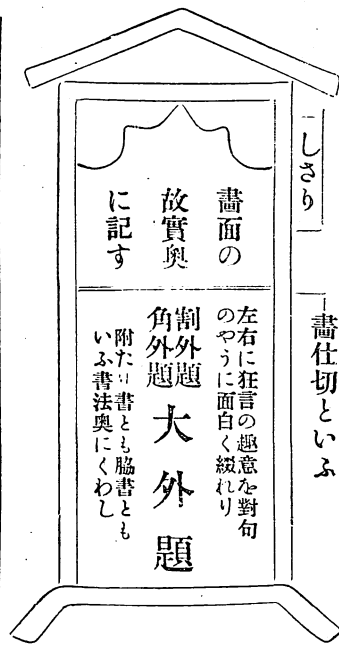 しさり
畫仕切といふ
畫面の
故實奥
に記す
左右に狂言の趣意を對句
のやうに面白く綴れり
割外題
角外題
大外題
附たり書とも脇書とも
いふ書法奥にくわし